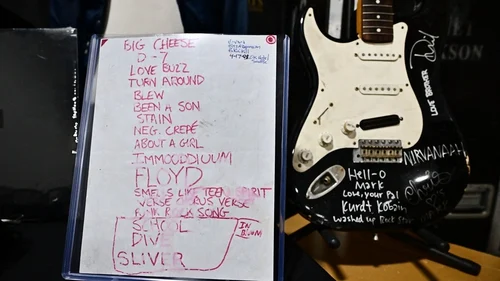 BIG CHEESE
D-7
LOVE BUZZ
TURN AROUND
BLEW
BEEN A SON
STAIN
NEG. CREPÉ
ABOUT A GIRL
IMMODDIUUM
FLOYD
SMELLS LIKE TEEN SPIRIT
VERSE CHORUS VERSE
PUNK ROCK SONG
SCHOOL
DIVE
SLIVER
IN
BLOOM
LOVE
NIRVANAAAH
Hell-O
Mark
Love, your Pal
Kurdt Kobain
Washed up Rock Star